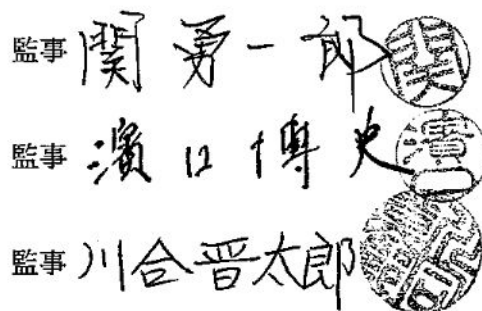 監事 関勇一郎 関
監事 濱口博史 濱口
監事 川合晋太郎